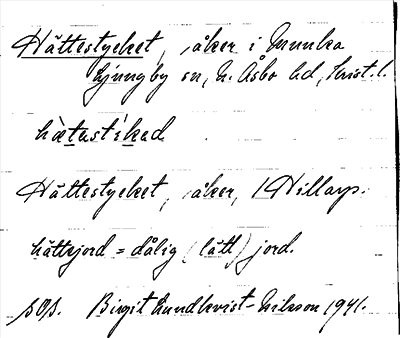 Hättestycket, åker i Munka
Ljungby sn, N. Åsbo hd, Krist. l.
hätastikad
Hättestycket, åker, 1 Hillarp.
hättejord = dålig (lätt) jord.
SOS. Birgit Lundkvist-Nilsson 1941.